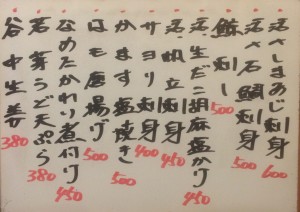 活〆しまあじ刺身 600
活〆石鯛刺身 500
鯨刺し 500
活生だこ胡麻塩かけ 450
活帆立刺身 450
サヨリ刺身 400
かます塩焼き 500
はも唐揚げ 500
なめたかれい煮付け 450
若芽うど天ぷら 380
谷中生姜 380